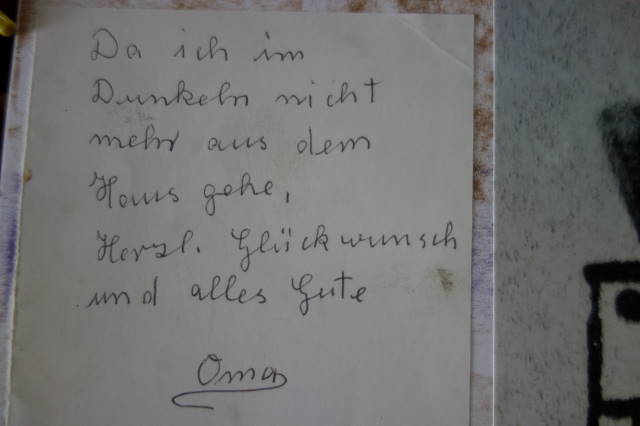 Da ich im
Dunkeln nicht
mehr aus dem
Haus gehe,
Herzl. Glückwunsch
und alles Gute
Oma